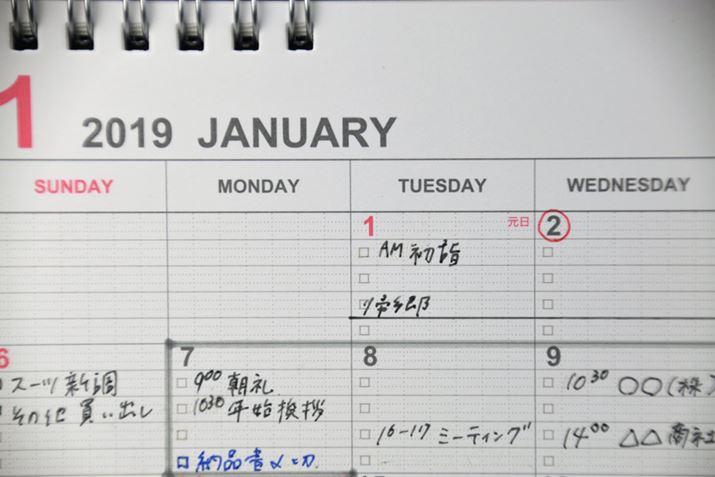 1 2019 JANUARY
SUNDAY MONDAY TUESDAY WEDNESDAY
1 元日 2
AM 初詣
帰郷
6 7 8 9
スーツ新調 9:00 朝礼 10:30 〇〇(株)
その他買い出し 10:30 年始挨拶
16-17 ミーティング 14:00 △△商社
納品書〆切